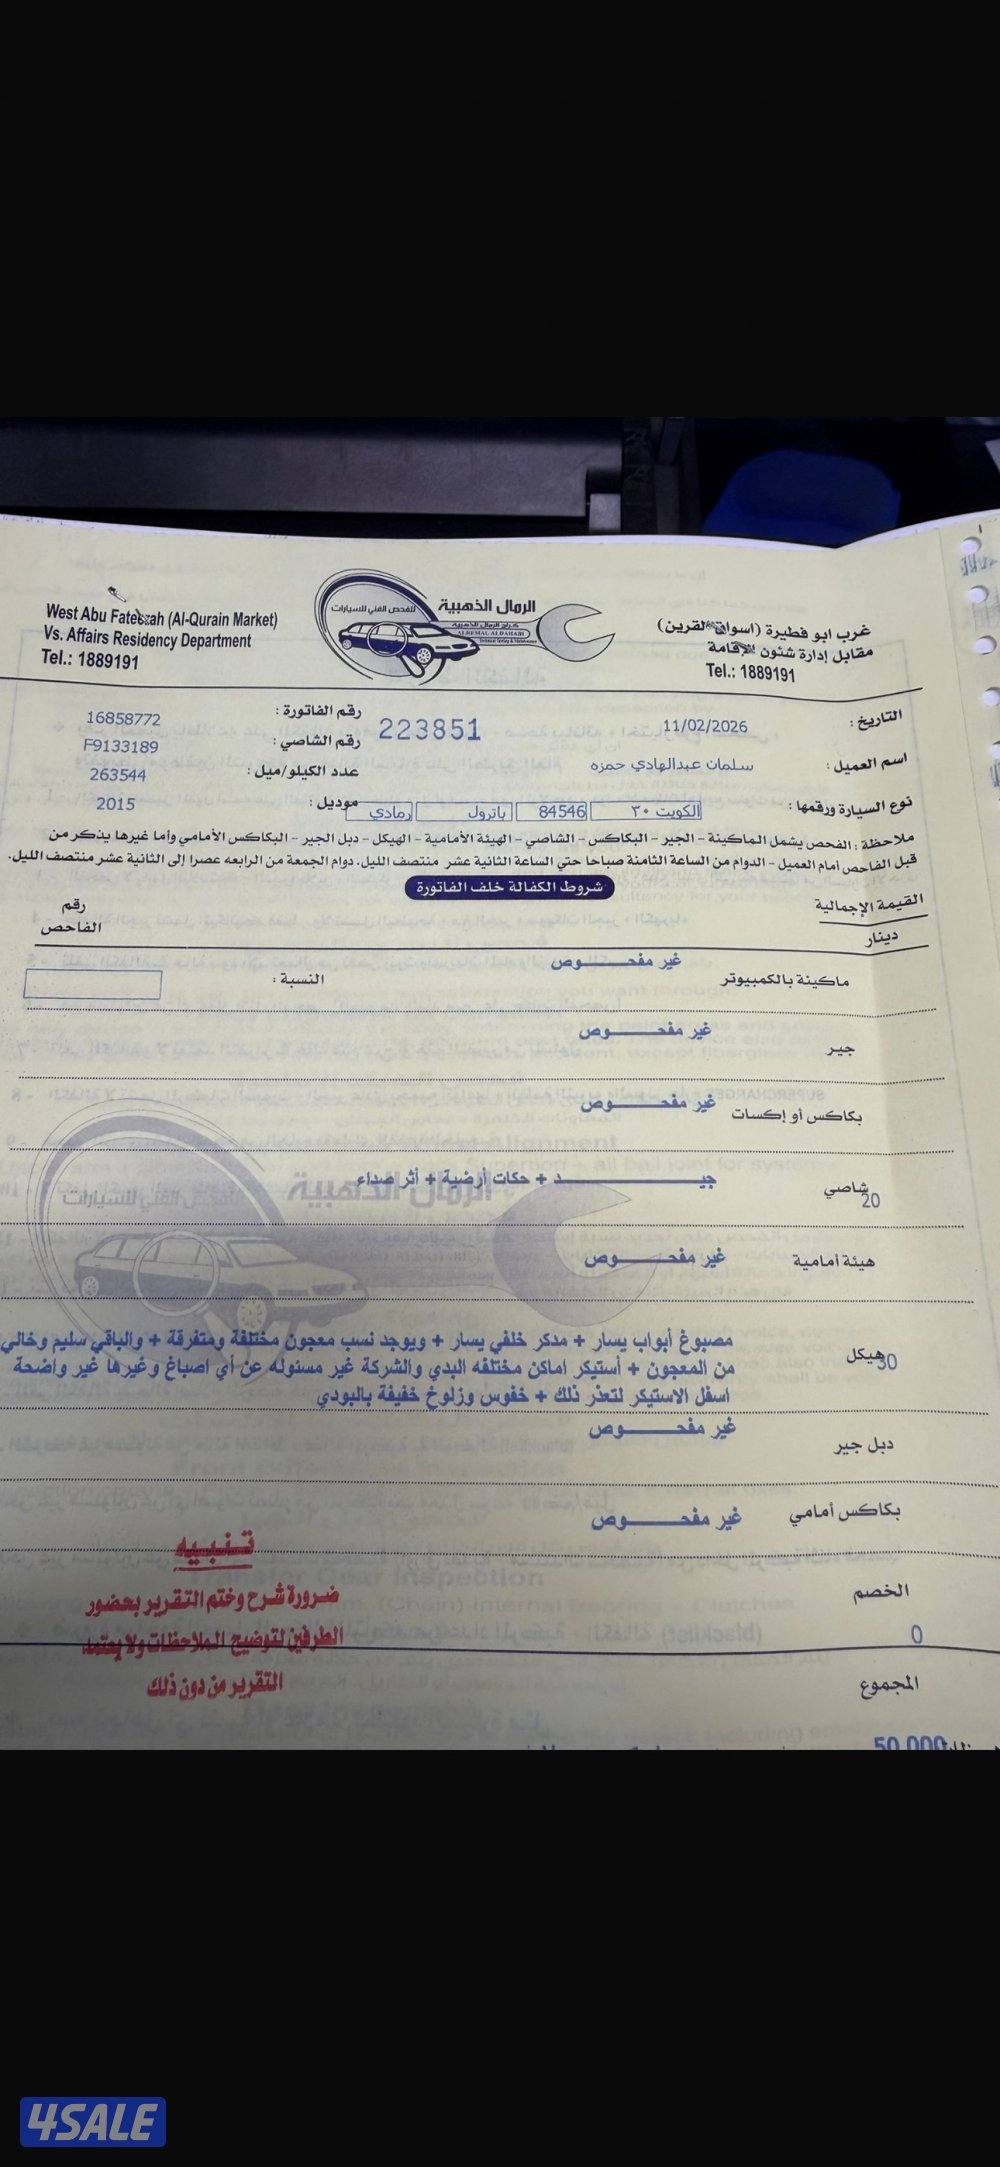 West Abu Fateerah (Al-Qurain Market)
Vs. Affairs Residency Department
Tel.: 1889191
الرمال الذهبية
للفحص الفني للسيارات
كراج الرمال الذهبية
ALREMAL ALDAHABI
Technical Testing & Maintenance
غرب ابو فطيرة (اسواق القرين)
مقابل إدارة شئون الإقامة
Tel.: 1889191
التاريخ : 11/02/2026
223851
رقم الفاتورة : 16858772
رقم الشاصي : F9133189
اسم العميل : سلمان عبدالهادي حمزه
عدد الكيلو/ميل : 263544
نوع السيارة ورقمها : الكويت ٣٠ 84546 باترول رمادي
موديل : 2015
ملاحظة : الفحص يشمل الماكينة - الجير - البكاكس - الشاصي - الهيئة الأمامية - الهيكل - دبل الجير - البكاكس الأمامي وأما غيرها يذكر من
قبل الفاحص أمام العميل - الدوام من الساعة الثامنة صباحا حتي الساعة الثانية عشر منتصف الليل. دوام الجمعة من الرابعه عصرا إلى الثانية عشر منتصف الليل.
شروط الكفالة خلف الفاتورة
القيمة الإجمالية
دينار
رقم
الفاحص
ماكينة بالكمبيوتر غير مفحـــــوص النسبة :
جير غير مفحـــــوص
بكاكس أو إكسات غير مفحـــــوص
شاصي 20 جيـــــــــــد + حكات أرضية + أثر صداء
هيئة أمامية غير مفحـــــوص
هيكل 30 مصبوغ أبواب يسار + مدكر خلفي يسار + ويوجد نسب معجون مختلفة ومتفرقة + والباقي سليم وخالي
من المعجون + أستيكر اماكن مختلفه البدي والشركة غير مسئوله عن أي اصباغ وغيرها غير واضحة
اسفل الاستيكر لتعذر ذلك + خفوس وزلوخ خفيفة بالبودي
دبل جير غير مفحـــــوص
بكاكس أمامي غير مفحـــــوص
الخصم
0
المجموع
50.000
تنبيه
ضرورة شرح وختم التقرير بحضور
الطرفين لتوضيح الملاحظات ولا يعتمد
التقرير من دون ذلك
4SALE